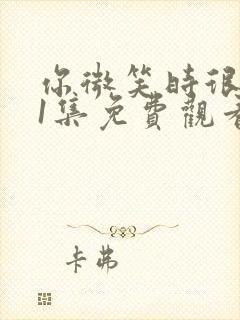 你微笑時很
1集免費觀看
卡弗